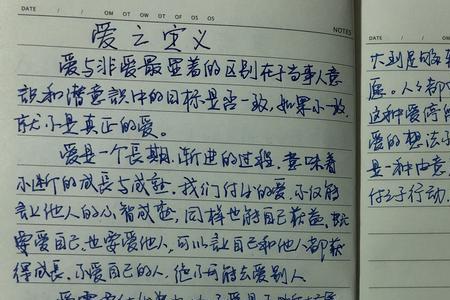 DATE / / OM OT OW DT OF OS OS
NOTES
DATE / /
爱之定义
爱与非爱最显着的区别在于当事人意
识和潜意识中的目标是否一致,如果不一致,
就不是真正的爱。
爱是一个長期,渐进的过程,意味着
不断的成長与成熟,我们付出的爱,不仅能
让他人的心智成熟,同样也能自己获益。
要爱自己,也要爱他人,可以让自己和他人都获
得成長。不爱自己的人,他不可能去爱别人
大到足够
愿。人人都
这种爱停
爱的想法不
是一种由意
付之于行动.